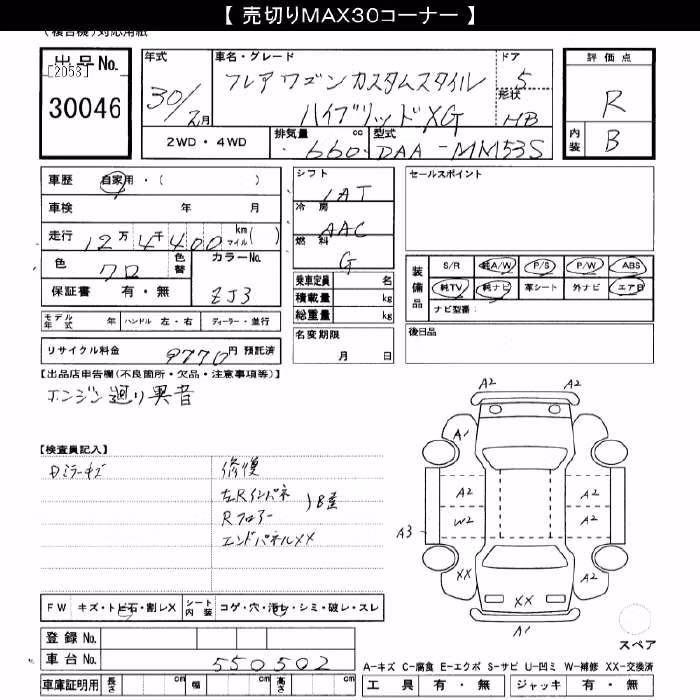 【 売切りMAX30コーナー 】
(複合機)対応用紙
出品No.
[2053]
30046
年式 30/2月
車名・グレード フレアワゴンカスタムスタイル
ハイブリッドXG
ドア 5
形状 HB
2WD・4WD
排気量 660 cc
型式 DAA-MM53S
評価点
R
内装 B
車歴 自家用・( )
車検 年 月
走行 12万4千400 km マイル( )
色 クロ
色替
カラーNo. ZJ3
保証書 有・無
シフト IAT
冷房 AAC
燃料 G
乗車定員 名
積載量 kg
総重量 kg
名変期限
月 日
セールスポイント
装備品
S/R 純A/W P/S P/W ABS
純TV 純ナビ 革シート 外ナビ エアB
ナビ型番:
後日品
モデル年式 年 ハンドル 左・右 ディーラー・並行
リサイクル料金 9770円 預託済
【出品店申告欄(不良箇所・欠品・注意事項等)】
エンジン廻り異音
【検査員記入】
Dミラーキズ
修復
左Rインパネ
Rフロアー
)B歪
エンドパネルXX
FW キズ・トビ石・割レX シート内装 コゲ・穴・汚レ・シミ・破レ・スレ
登録No.
車台No. 550502
車庫証明用 長さ cm 幅 cm 高さ cm
A2 A2
A1
A2 A2
W2 A2
A3
XX A2
XX
A1
スペア
A-キズ C-腐食 E-エクボ S-サビ U-凹ミ W-補修 XX-交換済
工具 有・無 ジャッキ 有・無